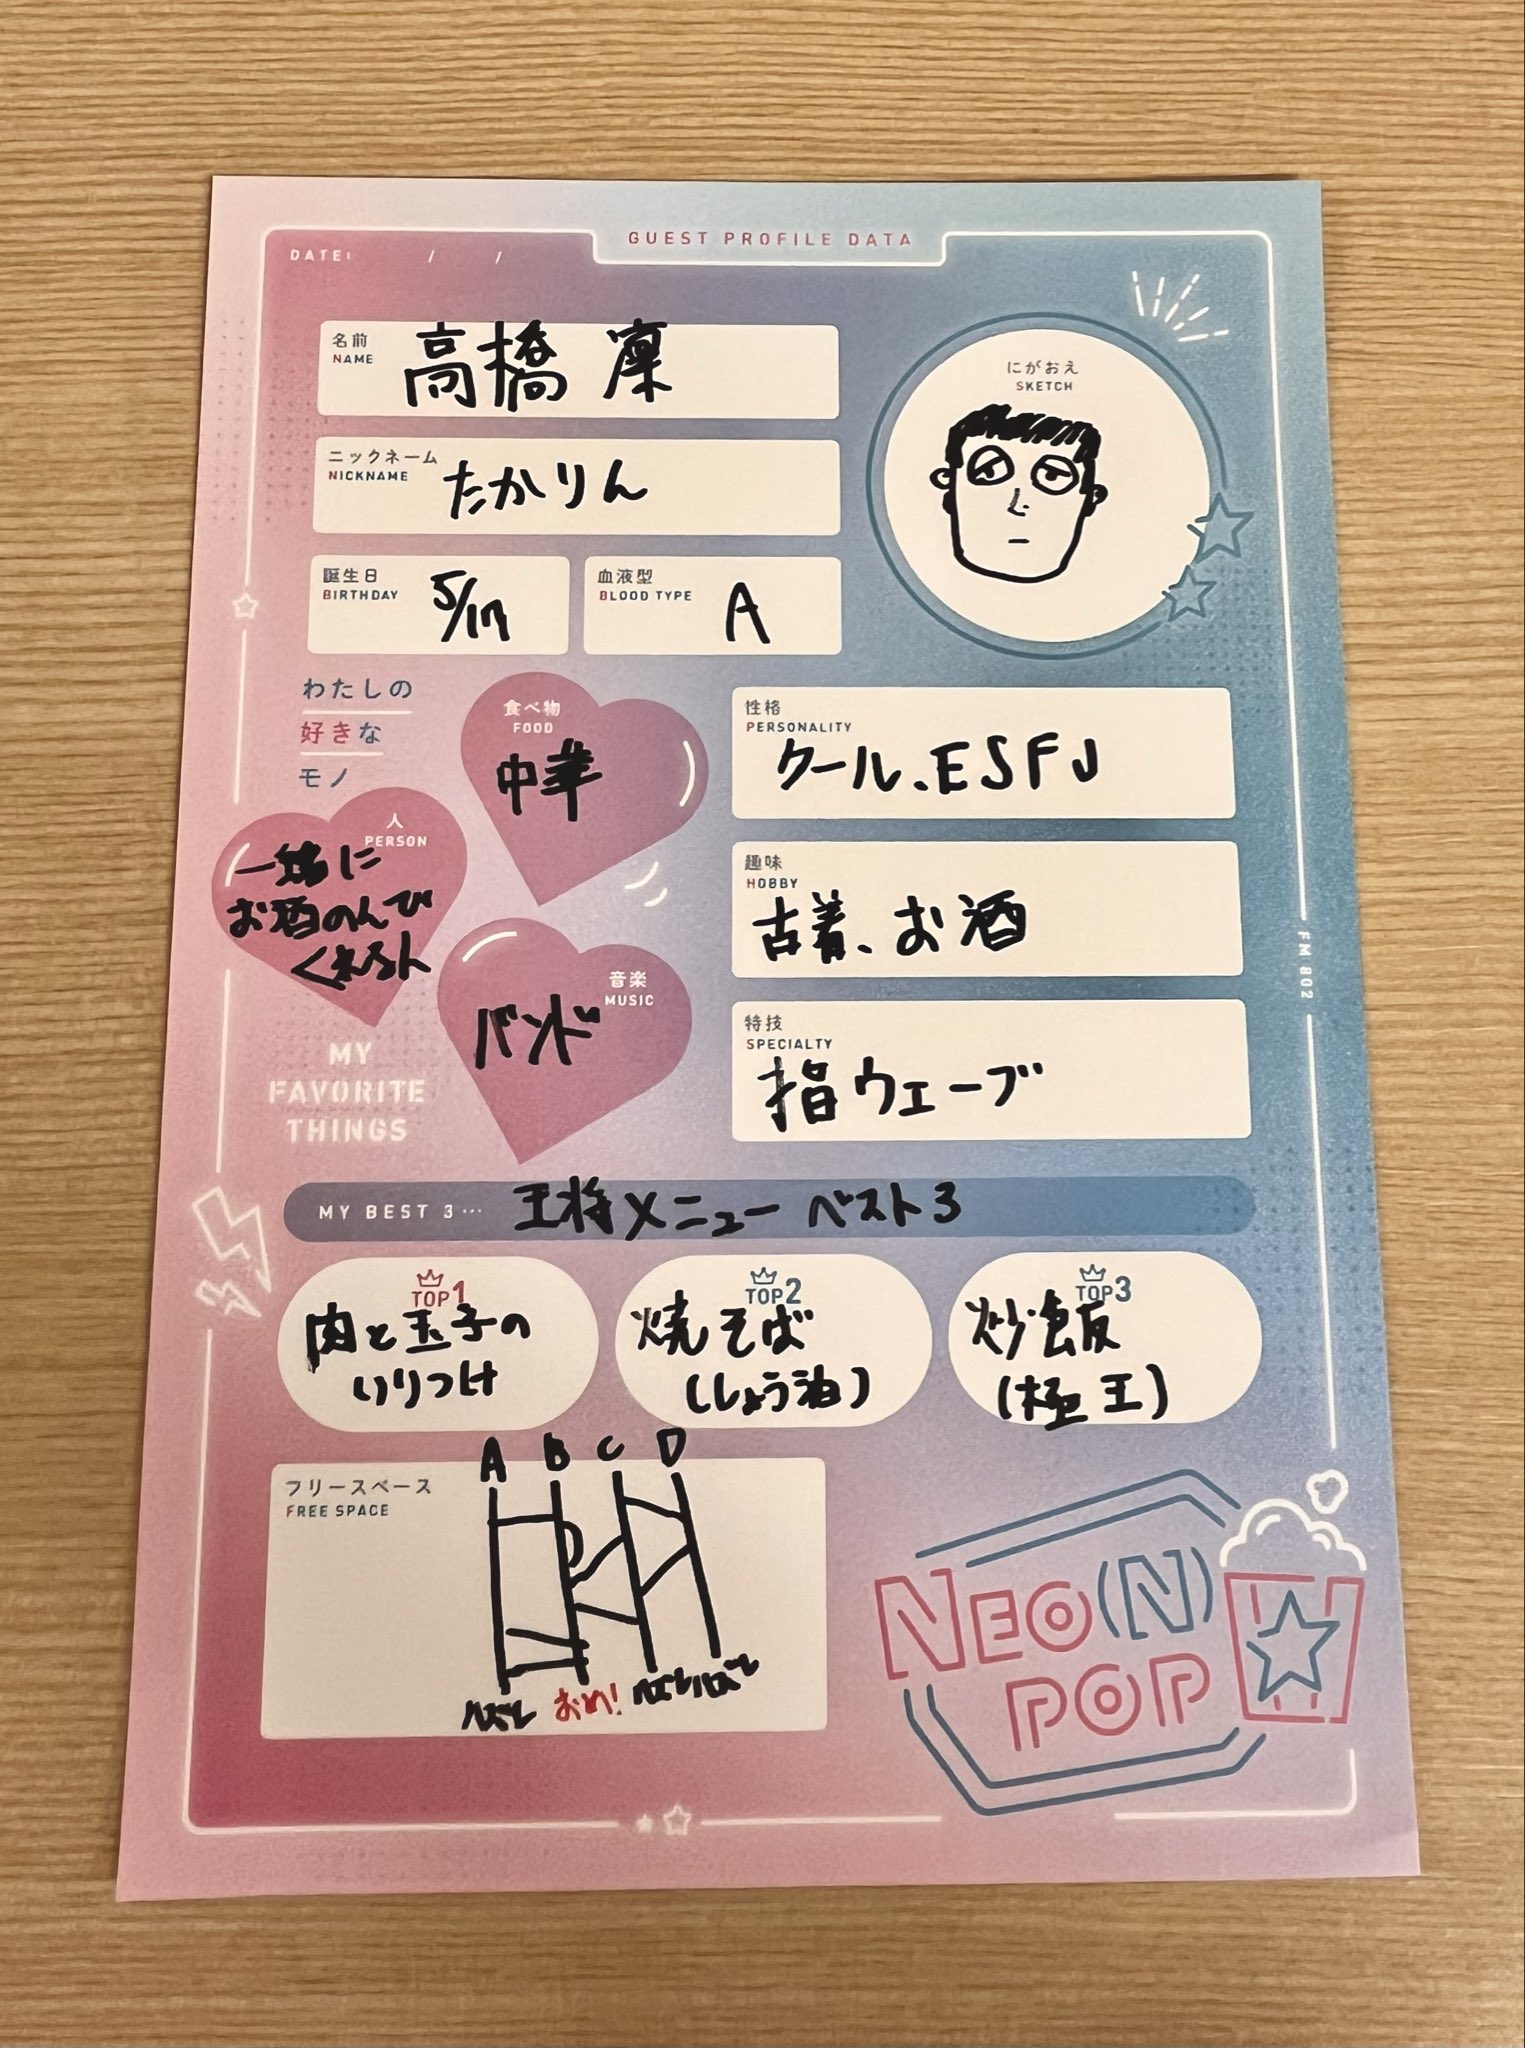 GUEST PROFILE DATA
DATE: / /
名前
NAME
高橋 凜
ニックネーム
NICKNAME
たかりん
誕生日
BIRTHDAY
5/17
血液型
BLOOD TYPE
A
にがおえ
SKETCH
わたしの
好きな
モノ
食べ物
FOOD
中華
人
PERSON
一緒に
お酒のんで
くれる人
音楽
MUSIC
バンド
MY
FAVORITE
THINGS
性格
PERSONALITY
クール、ESFJ
趣味
HOBBY
古着、お酒
特技
SPECIALTY
指ウェーブ
FM 802
MY BEST 3… 王将メニュー ベスト3
TOP1
肉と玉子の
いりつけ
TOP2
焼そば
(しょう油)
TOP3
炒飯
(極王)
フリースペース
FREE SPACE
A B C D
ハズレ おめ! ハズレ ハズレ
NEO(N)
POP